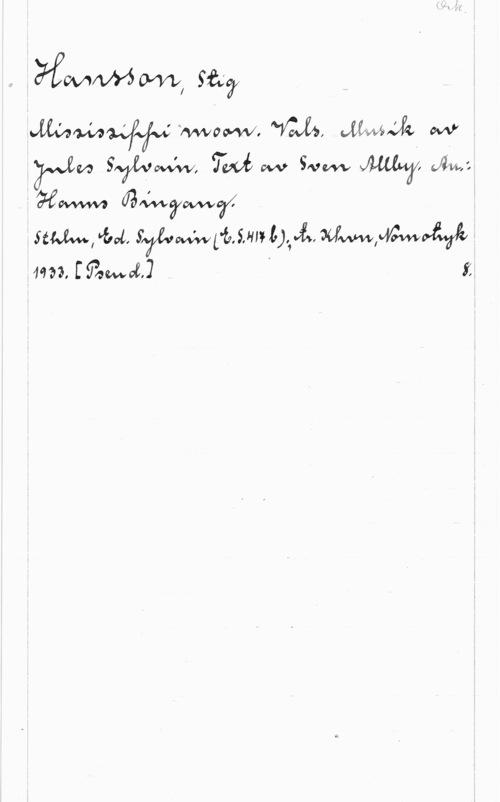 Ork.
Hansson, Stig
Mississippi moon. Vals. Musik av
Jules Sylvain. Text av Sven Allby. Arr.:
Hanns Bingang.
Sthlm, Ed. Sylvain (E.S. 417 b); tr. Khvn, Nomotryk
1933. [Pseud.] 8.